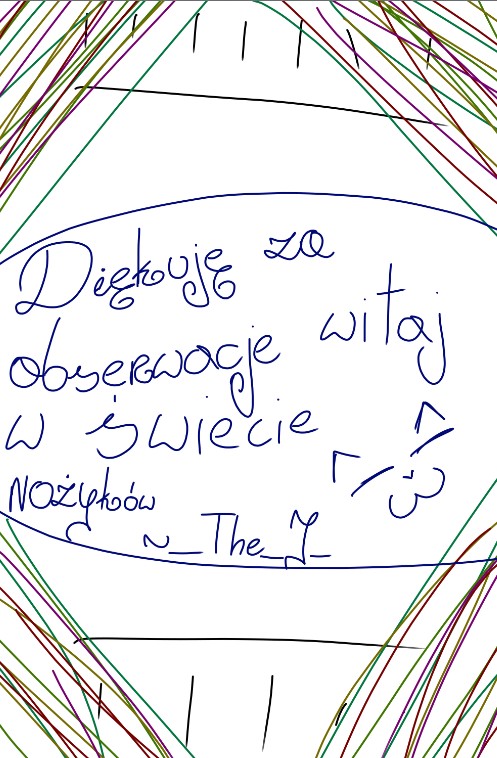 Diękuję za
obserwacje witaj
w świecie
NOżyków
~_The_J_